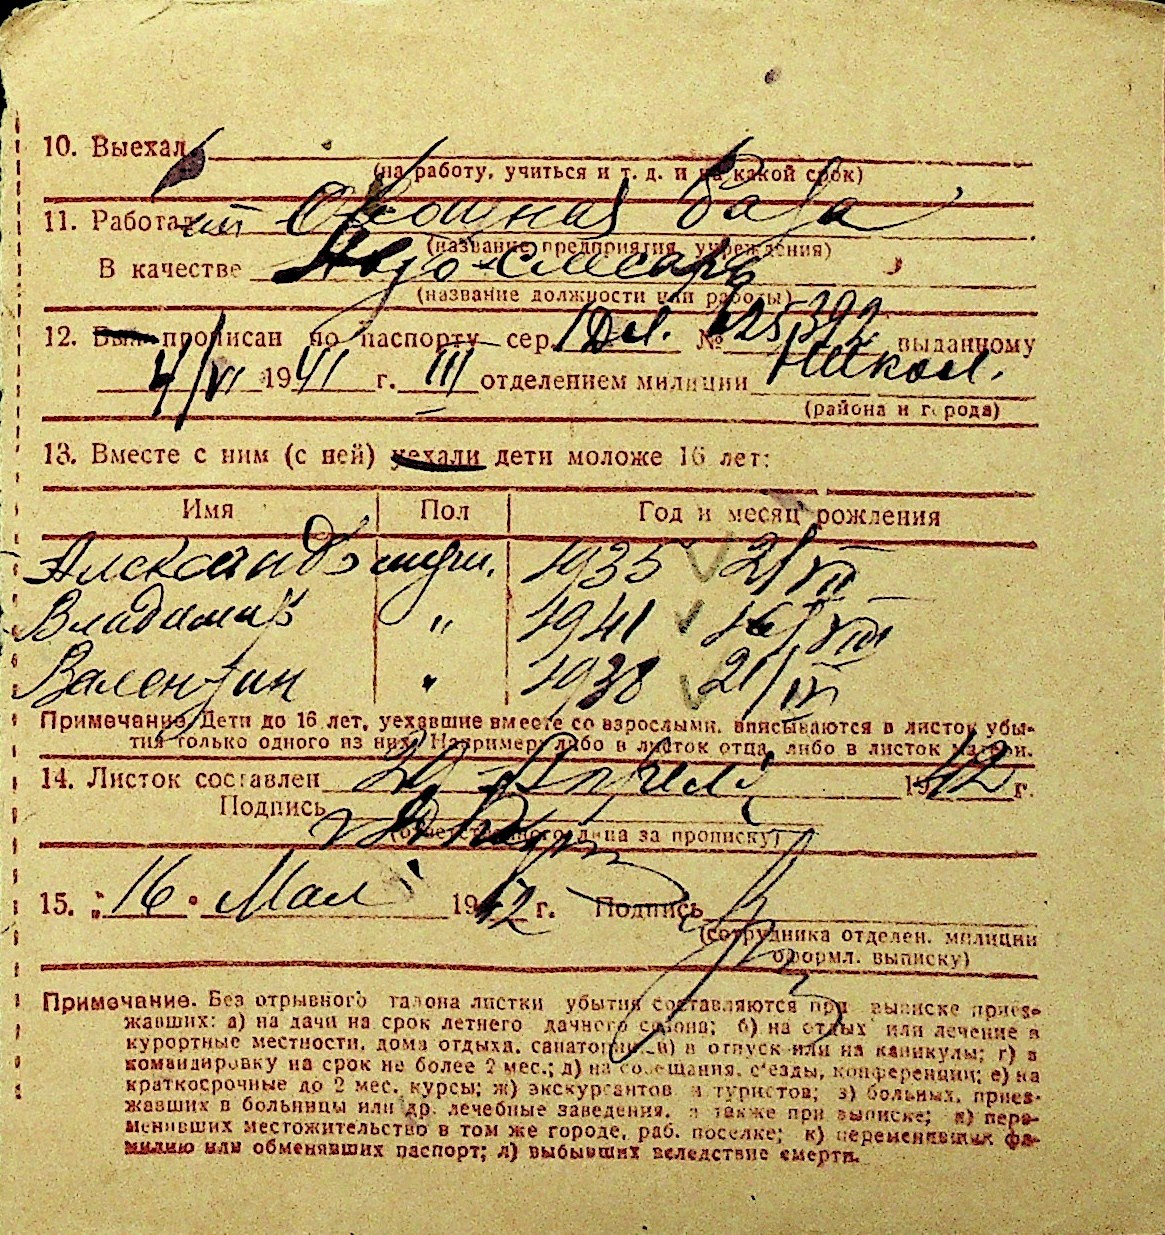 10. Выехал
(на работу, учиться и т. д. и на какой срок)
11. Работал Овощная база
(название предприятия, учреждения)
В качестве Авто-слесарь
(название должности или работы)
12. Был прописан по паспорту сер. № 625392 выданному
4/VI 1941 г. III отделением милиции Никол.
(района и города)
13. Вместе с ним (с ней) уехали дети моложе 16 лет:
Имя Пол Год и месяц рождения
Александр муж. 1935 21/VII
Владимир " 1941 16/VIII
Валентин " 1938 21/III
Примечание. Дети до 16 лет, уехавшие вместе со взрослыми, вписываются в листок убы-
тия только одного из них. Например: либо в листок отца, либо в листок матери.
14. Листок составлен Апреля 1942 г.
Подпись
(ответственного лица за прописку)
15. „16" Мая 1942 г. Подпись
(сотрудника отделен. милиции
оформл. выписку)
Примечание. Без отрывного талона листки убытия составляются при выписке приез-
жавших: а) на дачи на срок летнего дачного сезона; б) на отдых или лечение в
курортные местности, дома отдыха, санатории; в) в отпуск или на каникулы; г) в
командировку на срок не более 2 мес.; д) на совещания, съезды, конференции; е) на
краткосрочные до 2 мес. курсы; ж) экскурсантов и туристов; з) больных, приез-
жавших в больницы или др. лечебные заведения, а также при выписке; и) пере-
менивших местожительство в том же городе, раб. поселке; к) переменивших фа-
милию или обменявших паспорт; л) выбывших вследствие смерти.